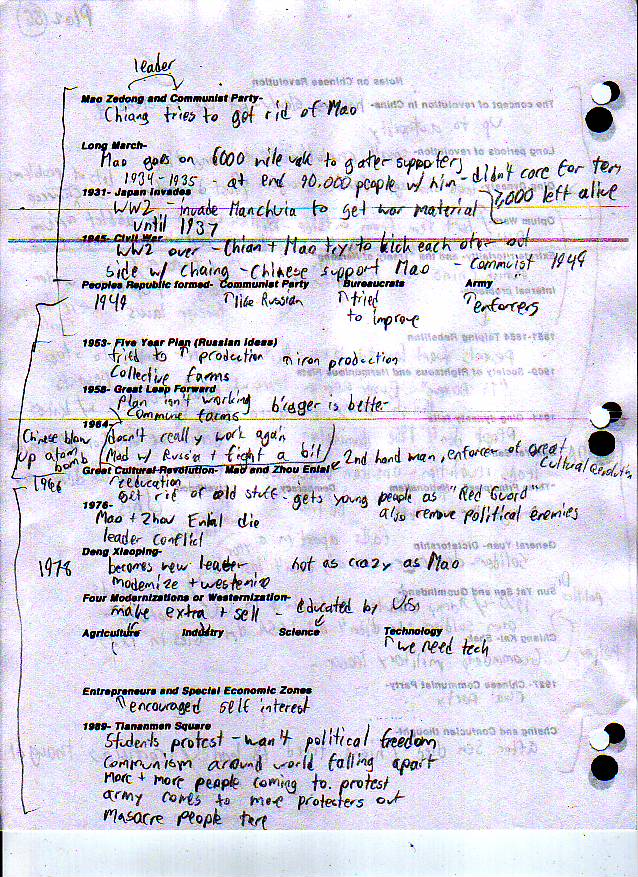 leader
Mao Zedong and Communist Party-
Chiang tries to get rid of Mao
Long March-
Mao goes on 6000 mile walk to gather supporters
1934-1935 - at end 90,000 people w/ him - didn't care for them
1931- Japan Invades
7,000 left alive
WW2 - invade Manchuria to get war material
until 1937
1945- Civil War
WW2 over - Chian + Mao try to kick each other out
side w/ Chaing - Chinese support Mao - Commuist 1949
Peoples Republic formed- Communist Party Bureaucrats Army
1949 ↑like Russian ↑tried ↑enforcers
to improve
1953- Five Year Plan (Russian Ideas)
tried to ↑ production ↑iron production
Collective farms
1958- Great Leap Forward
Plan isn't working bigger is better
commune farms
1964-
Chinese blow
up atom
bomb
doesn't really work again
Mad w/ Russia + fight a bit
2nd hand man, enforcer of Great
Cultural revolution
Great Cultural Revolution- Mao and Zhou Enlai
1966
reeducation
Get rid of old stuff - gets young people as "Red Guard"
also remove political enemies
1976-
Mao + Zhou Enlai die
leader conflict
Deng Xiaoping-
1978 becomes new leader not as crazy as Mao
modernize + westernize
Four Modernizations or Westernization-
make extra + sell - educated by U.S.
Agriculture Industry Science Technology
↑we need tech
Entrepreneurs and Special Economic Zones
↑encouraged self interest
1989- Tiananmen Square
Students protest - want political freedom
Communism around world falling apart
More + more people coming to protest
army comes to move protesters out
Masacre people there